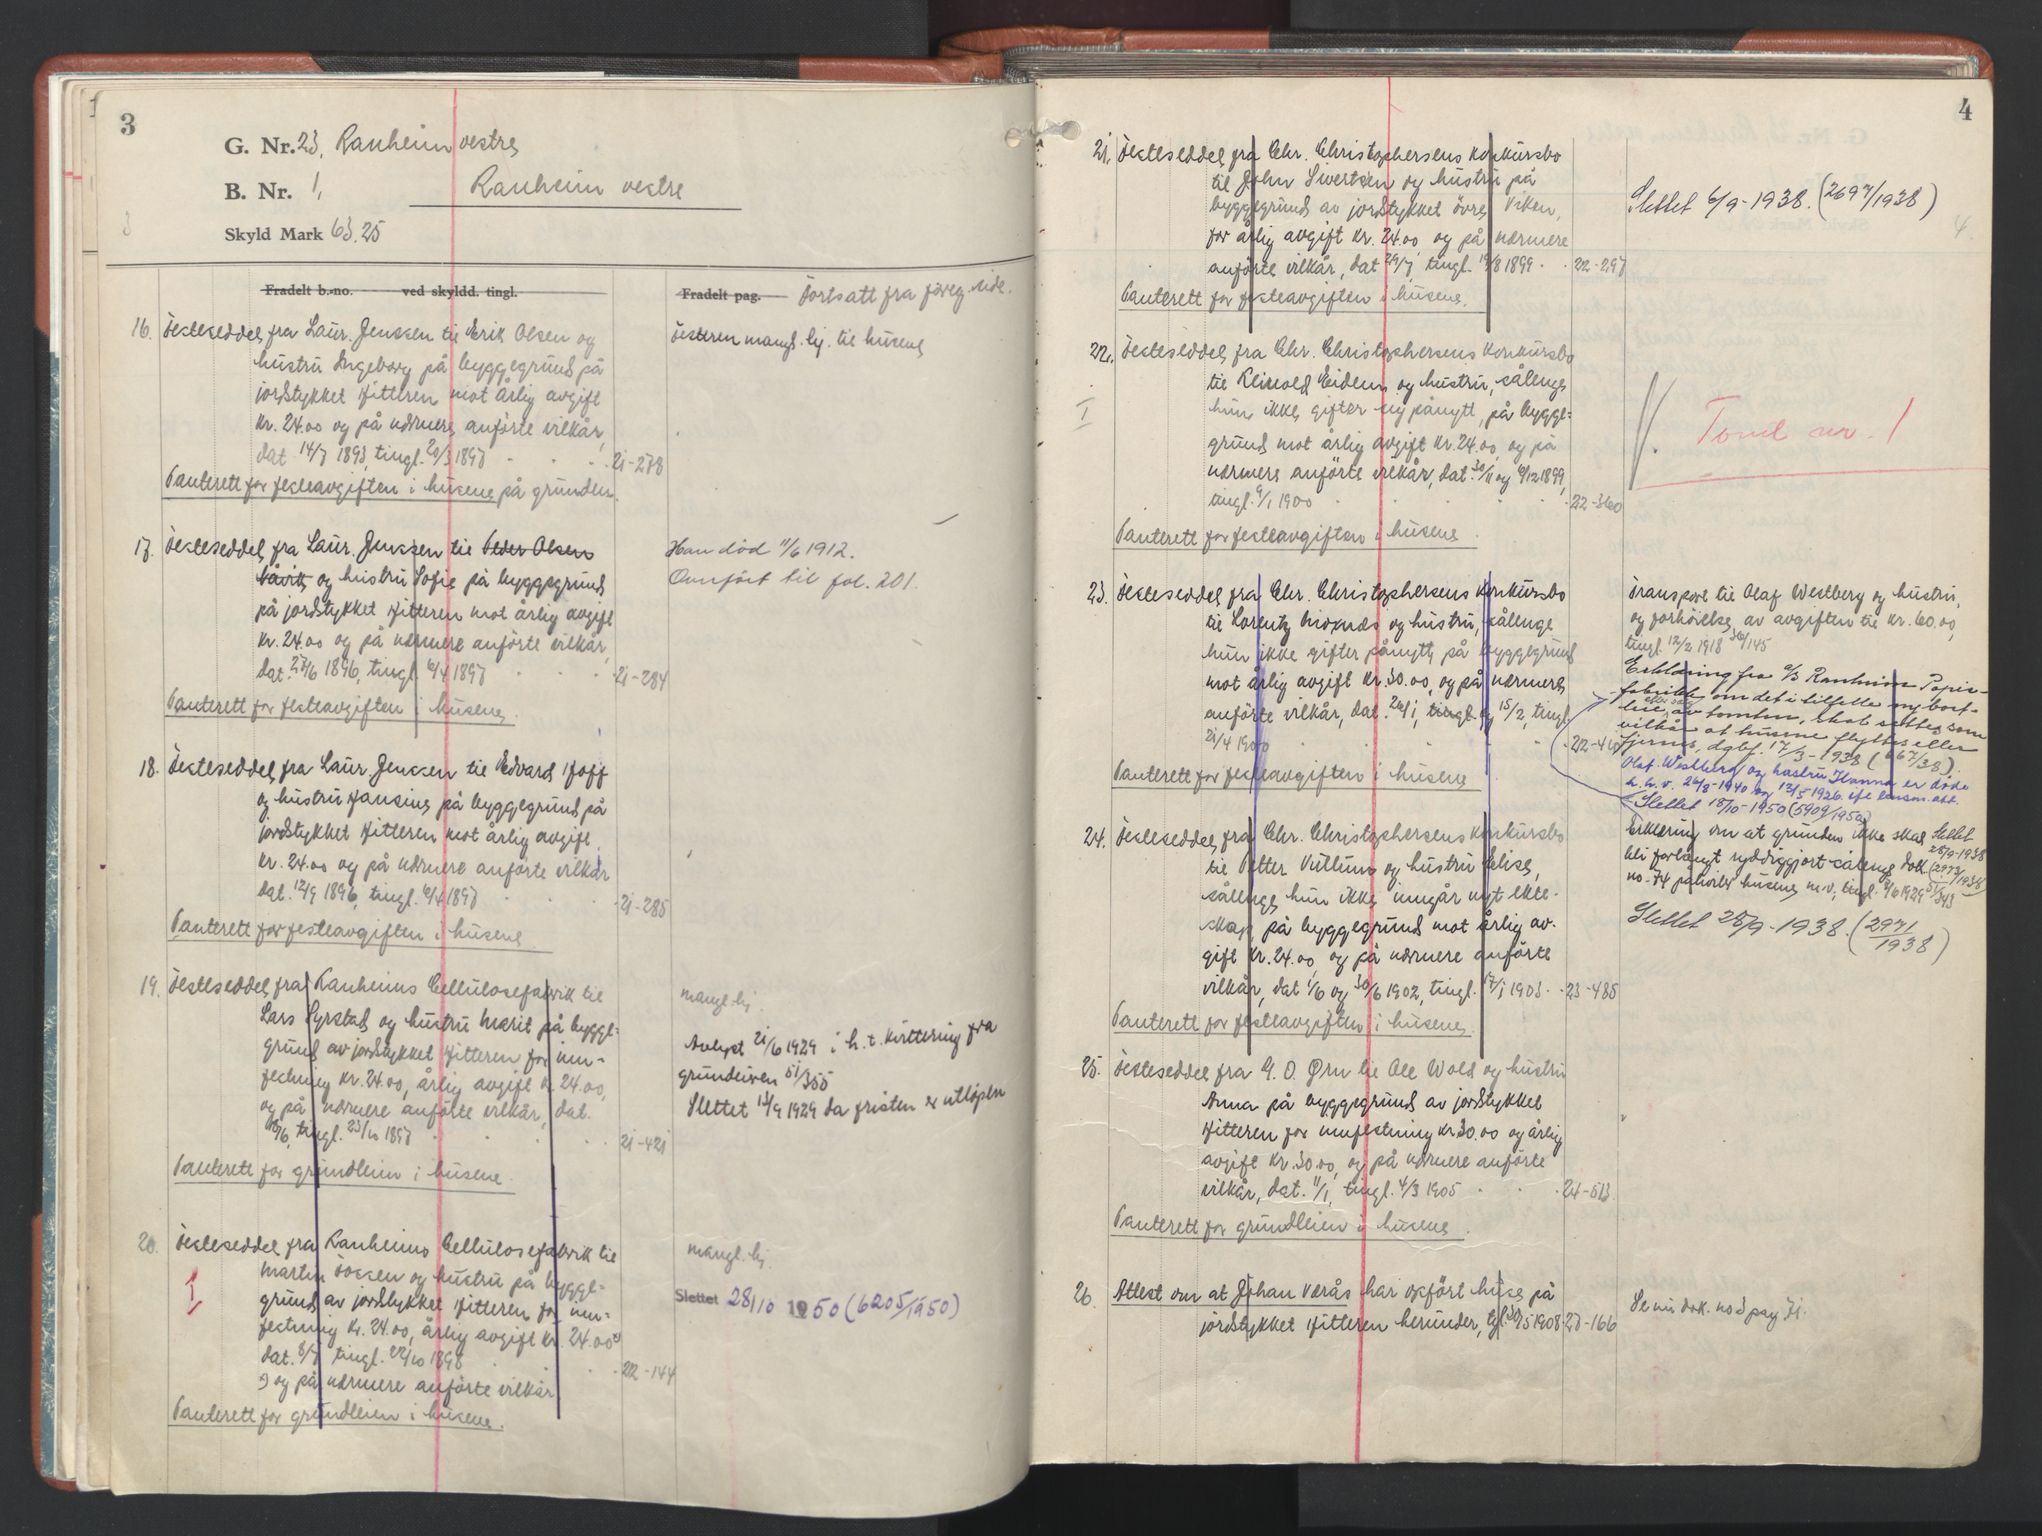 3
G. Nr. 23, Ranheim vestre
B. Nr. 1, Ranheim vestre
Skyld Mark 63.25
Fradelt b.-no. ved skyldd. tingl.
Fradelt pag. Fortsatt fra foreg. side.
16. Festeseddel fra Laur. Jenssen til Erik Olsen og
hustru Ingeborg på byggegrund på
jordstykket Hitteren mot årlig avgift
kr. 24.00 og på nærmere anförte vilkår,
dat. 14/7 1893, tingl. 20/3 1897 21-278
Panterett for festeavgiften i husene på grunden.
Festeren mangl. hj. til husene
17. Festeseddel fra Laur. Jenssen til Peder Olsen
Håvik og hustru Sofie på byggegrund
på jordstykket Hitteren mot årlig avgift
kr. 24.00 og på nærmere anförte vilkår,
dat. 27/6 1896, tingl. 6/4 1897 21-284
Panterett for festeavgiften i husene.
Han död 11/6 1912.
Overfört til fol. 201.
18. Festeseddel fra Laur. Jenssen til Edvard Hoff
og hustru Hansine på byggegrund på
jordstykket Hitteren mot årlig avgift
kr. 24.00 og på nærmere anförte vilkår
dat. 12/9 1896, tingl. 6/4 1897 21-285
Panterett for festeavgiften i husene
19. Festeseddel fra Ranheims Cellulosefabrik til
Lars Syrstad og hustru Marit på bygge-
grund av jordstykket Hitteren for inn-
festning kr. 24.00, årlig avgift kr. 24.00,
og på nærmere anförte vilkår, dat.
tingl. 23/10 1897 21-421
Panterett for grundleien i husene.
mangl. hj.
Avlyst 21/6 1929 i h. t. kvittering fra
grundeieren 51/355
Slettet 13/9 1929 da fristen er utlöpen
20. Festeseddel fra Ranheims Cellulosefabrik til
Martin Fossen og hustru på bygge-
grund av jordstykket Hitteren for inn-
festning kr. 24.00, årlig avgift kr. 24.00 x)
dat. 8/7 tingl. 22/10 1898 22-144
x) og på nærmere anförte vilkår
Panterett for grundleien i husene.
mangl. hj.
Slettet 28/10 1950 (6205/1950)
4
21. Festeseddel fra Chr. Christophersens konkursbo
til John Sivertsen og hustru på
byggegrund av jordstykket övre Viken,
for årlig avgift kr. 24.00 og på nærmere
anförte vilkår, dat. 29/7, tingl. 19/8 1899 22-297
Panterett for festeavgiften i husene.
Slettet 6/9-1938. (2697/1938)
22. Festeseddel fra Chr. Christophersens konkursbo
til Reinold Eidem og hustru, sålenge
hun ikke gifter sig pånytt, på bygge-
grund mot årlig avgift kr. 24.00, og på
nærmere anförte vilkår, dat. 30/11 og 6/12 1899,
tingl. 9/1 1900 22-360
Panterett for festeavgiften i husene.
Tomt nr. 1
23. Festeseddel fra Chr. Christophersens konkursbo
til Lorentz Moxnes og hustru, sålenge
hun ikke gifter pånytt, på byggegrund
mot årlig avgift kr. 30.00, og på nærmere
anförte vilkår, dat. 26/1, tingl. og 15/2, tingl.
21/4 1900 22-410
Panterett for festeavgiften i husene
Transport til Olaf Westberg og hustru,
og forhöielse av avgiften til kr. 60.00,
tingl. 12/2 1918 36/145
Erklæring fra A/S Ranheim Papir-
fabrikk om det i tilfelle ny bort-
leie av tomten, skal settes som
vilkår at husene flyttes eller
fjernes, dgbf. 17/3-1938 (667/38).
Olaf Westberg og hustru Hanna er döde
h. h. v. 26/8-1940 og 13/5-1926 ifl. lensm. att.
Slettet 18/10-1950 (5909/1950)
24. Festeseddel fra Chr. Christophersens konkursbo
til Petter Vullum og hustru Elise,
sålenge hun ikke inngår nyt ekte-
skap, på byggegrund mot årlig av-
gift kr. 24.00, og på nærmere anförte
vilkår, dat. 1/6 og 30/6 1902, tingl. 17/1 1903 23-485
Panterett for festeavgiften i husene.
Erklæring om at grunden ikke skal
bli forlangt ryddiggjort sålenge dok.
no. 74 påhviler husene m. v., tingl. 1929 51/343
Slettet 28/9-1938 (2973/1938)
Slettet 28/9-1938. (2971/1938)
25. Festeseddel fra G. O. Ørn til Ole Wold og hustru
Anna på byggegrund av jordstykket
Hitteren for innfestning kr. 30.00 og årlig
avgift kr. 30.00, og på nærmere anförte
vilkår, dat. 11/1, tingl. 4/3 1905 24-513
Panterett for grundleien i husene.
26. Attest om at Johan Verås har opfört huse på
jordstykket Hitteren herunder, 1908 27-166
Se nu dok. no 3 pag 71.